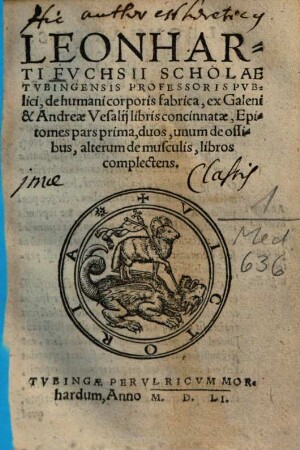 Hic author est hereticus
LEONHAR-
TI FVCHSII SCHOLAE
TVBINGENSIS PROFESSORIS PVB-
lici, de humani corporis fabrica, ex Galeni
& Andreæ Vesalij libris concinnatæ, Epi-
tomes pars prima, duos, unum de ossi-
bus, alterum de musculis, libros
complectens.
Classis
1
Med
636
VICTORIA
TVBINGÆ PER VLRICVM MOR-
hardum, Anno M. D. LI.